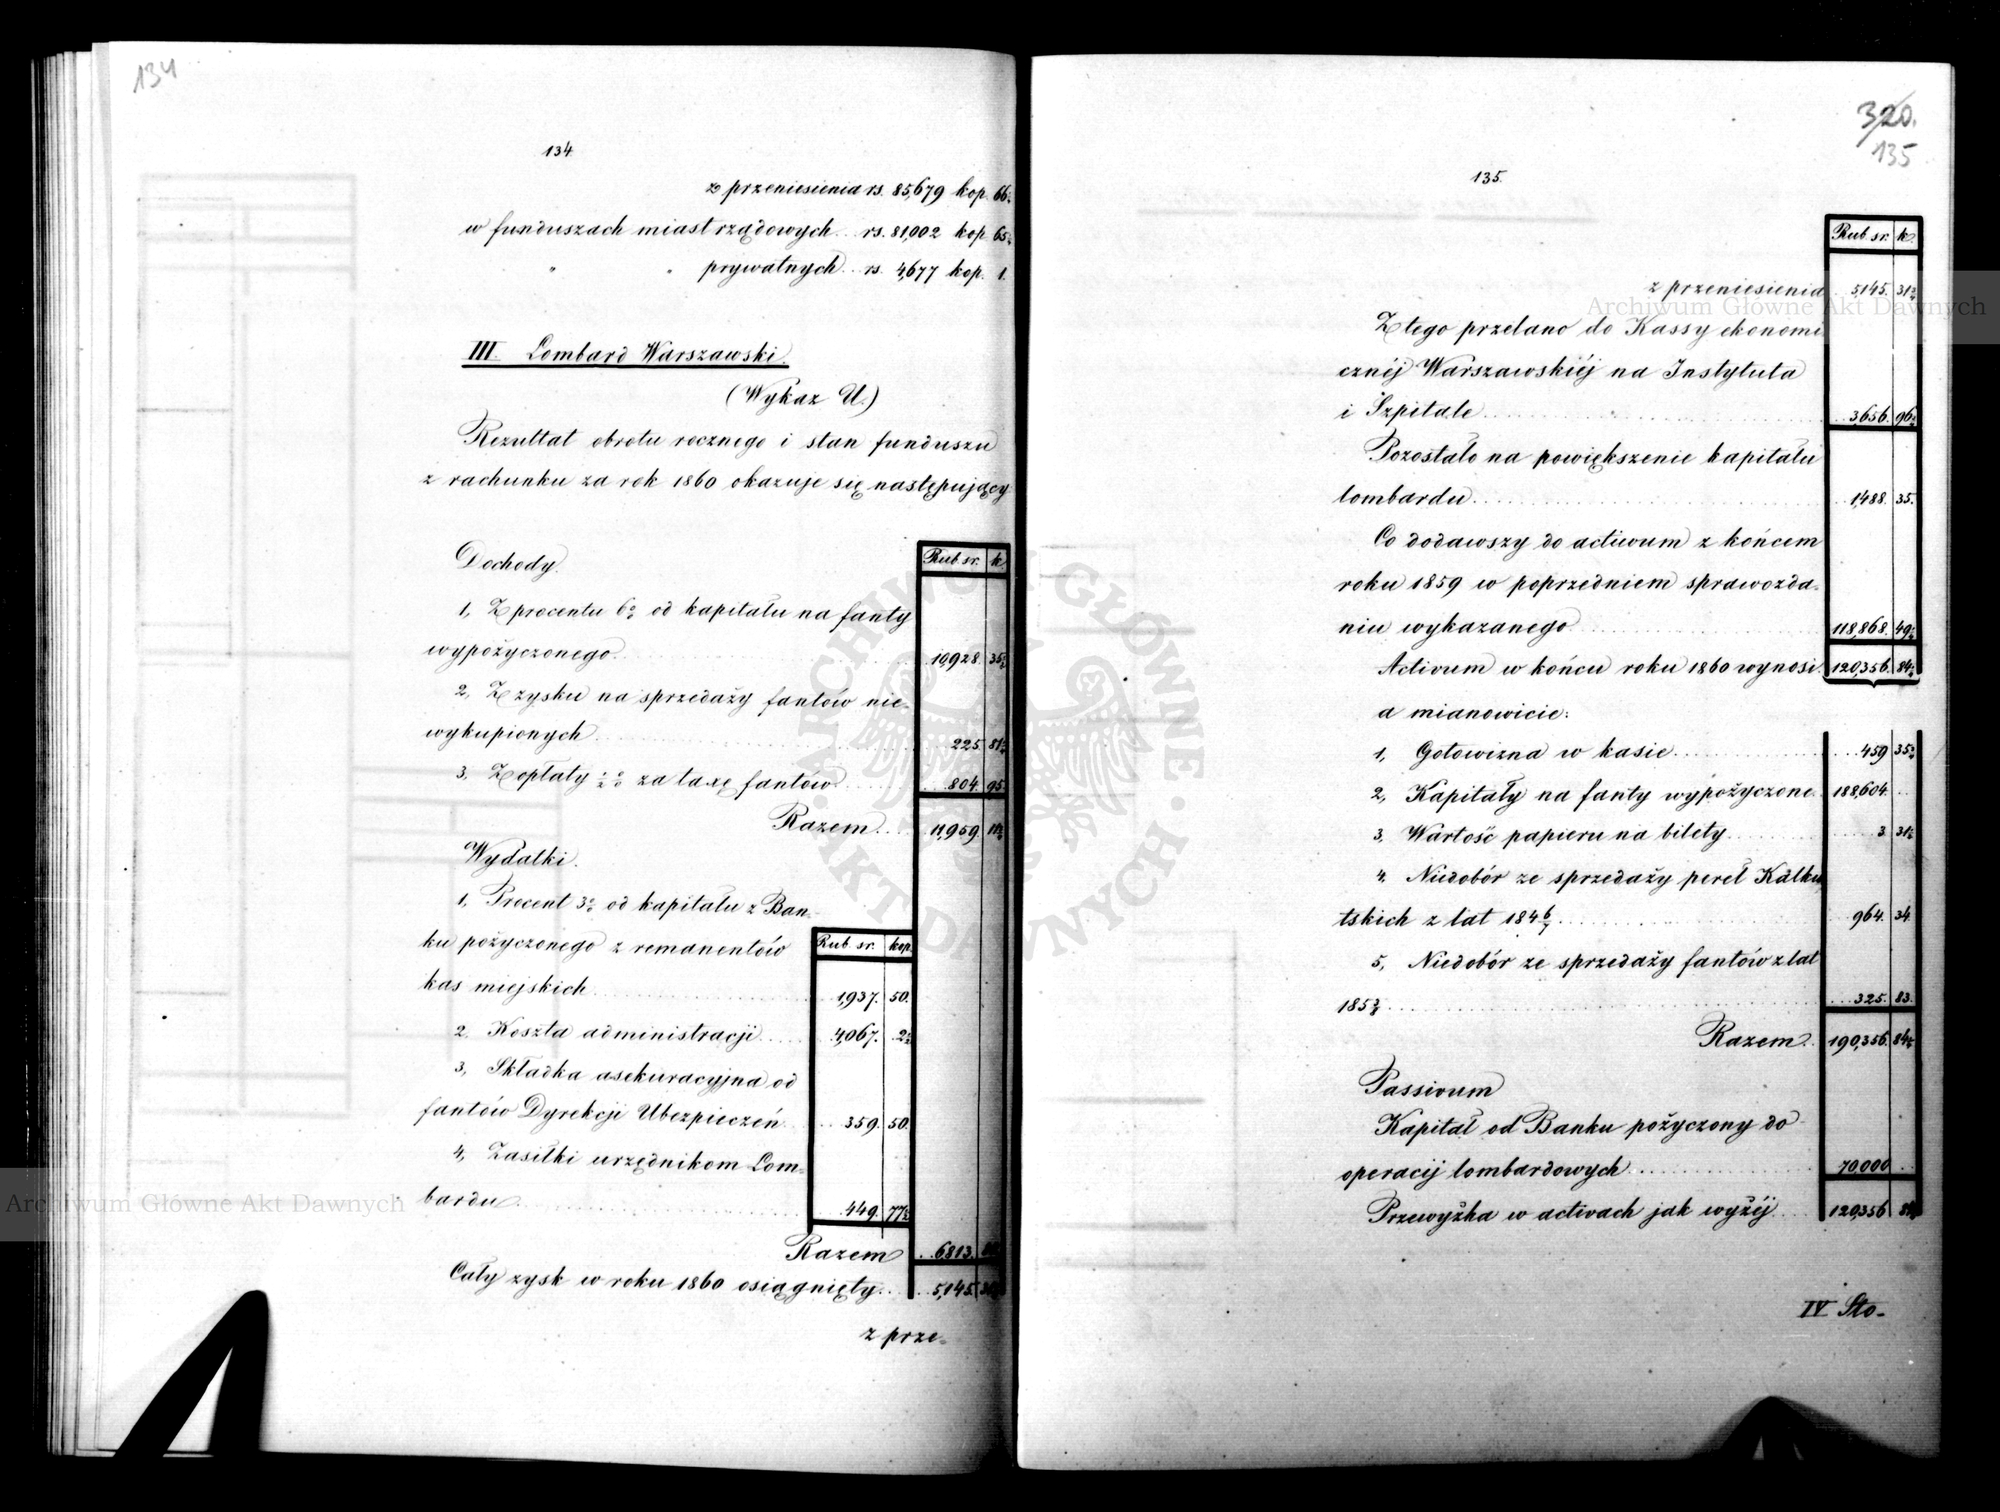 134
134
z przeniesienia rs. 85,679 kop. 66½
w funduszach miast rządowych rs. 81,002 kop. 65½
" " prywatnych rs. 4,677 kop. 1.
III. Lombard Warszawski.
(Wykaz U.)
Rezultat obrotu rocznego i stan funduszu
z rachunku za rok 1860 okazuje się następujący
Rub sr. k.
Dochody.
1, Z procentu 6% od kapitału na fanty
wypożyczonego 10,928. 35
2, Z zysku na sprzedaży fantów nie-
wykupionych 225 81
3. Z opłaty ½% za taxę fantów 804. 95
Razem 11,959. 11½
Wydatki.
1, Procent 3% od kapitału z Ban-
Rub. sr. kop.
ku pożyczonego z remanentów
kas miejskich 1,937. 50.
2. Koszta administracji 4,067. 2½
3, Składka asekuracyjna od
fantów Dyrekcji Ubezpieczeń 359. 50.
4, Zasiłki urzędnikom Lom-
bardu 449. 77½
Razem 6813.
Cały zysk w roku 1860 osiągnięty 5,145. 31
z prze-
320.
135
135.
Rub sr. k.
z przeniesienia 5,145. 31
Z tego przelano do Kassy ekonomi
cznéj Warszawskiéj na Instytuta
i Szpitale 3656. 96
Pozostało na powiększenie kapitału
lombardu 1,488. 35.
Co dodawszy do activum z końcem
roku 1859 w poprzedniem sprawozda-
niu wykazanego 118,868. 49½
Activum w końcu roku 1860 wynosi 120,356. 84½
a mianowicie:
1, Gotowizna w kasie 459 35
2, Kapitały na fanty wypożyczone 188,604.
3, Wartość papieru na bilety 3 31½
4. Niedobór ze sprzedaży pereł Kalku
tskich z lat 1846/7 964. 34
5, Niedobór ze sprzedaży fantów z lat
185 325. 83.
Razem 190,356. 84½
Passivum
Kapitał od Banku pożyczony do
operacij lombardowych 70,000
Przewyżka w activach jak wyżéj 120,356 84½
IV Sto-
Archiwum Główne Akt Dawnych
Archiwum Główne Akt Dawnych
ARCHIWUM GŁÓWNE AKT DAWNYCH